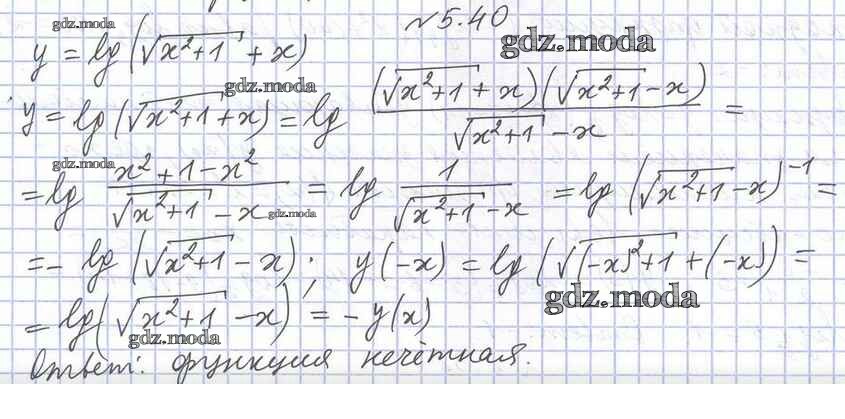 № 5.40
gdz.moda
y = lg(√(x²+1) + x)
gdz.moda
gdz.moda
y = lg(√(x²+1) + x) = lg ((√(x²+1) + x)(√(x²+1) - x))/(√(x²+1) - x) =
gdz.moda
= lg (x²+1-x²)/(√(x²+1) - x) = lg 1/(√(x²+1) - x) = lg(√(x²+1) - x)⁻¹ =
gdz.moda
= - lg(√(x²+1) - x); y(-x) = lg(√((-x)²+1) + (-x)) =
gdz.moda
= lg(√(x²+1) - x) = - y(x)
gdz.moda
Ответ: функция нечётная.